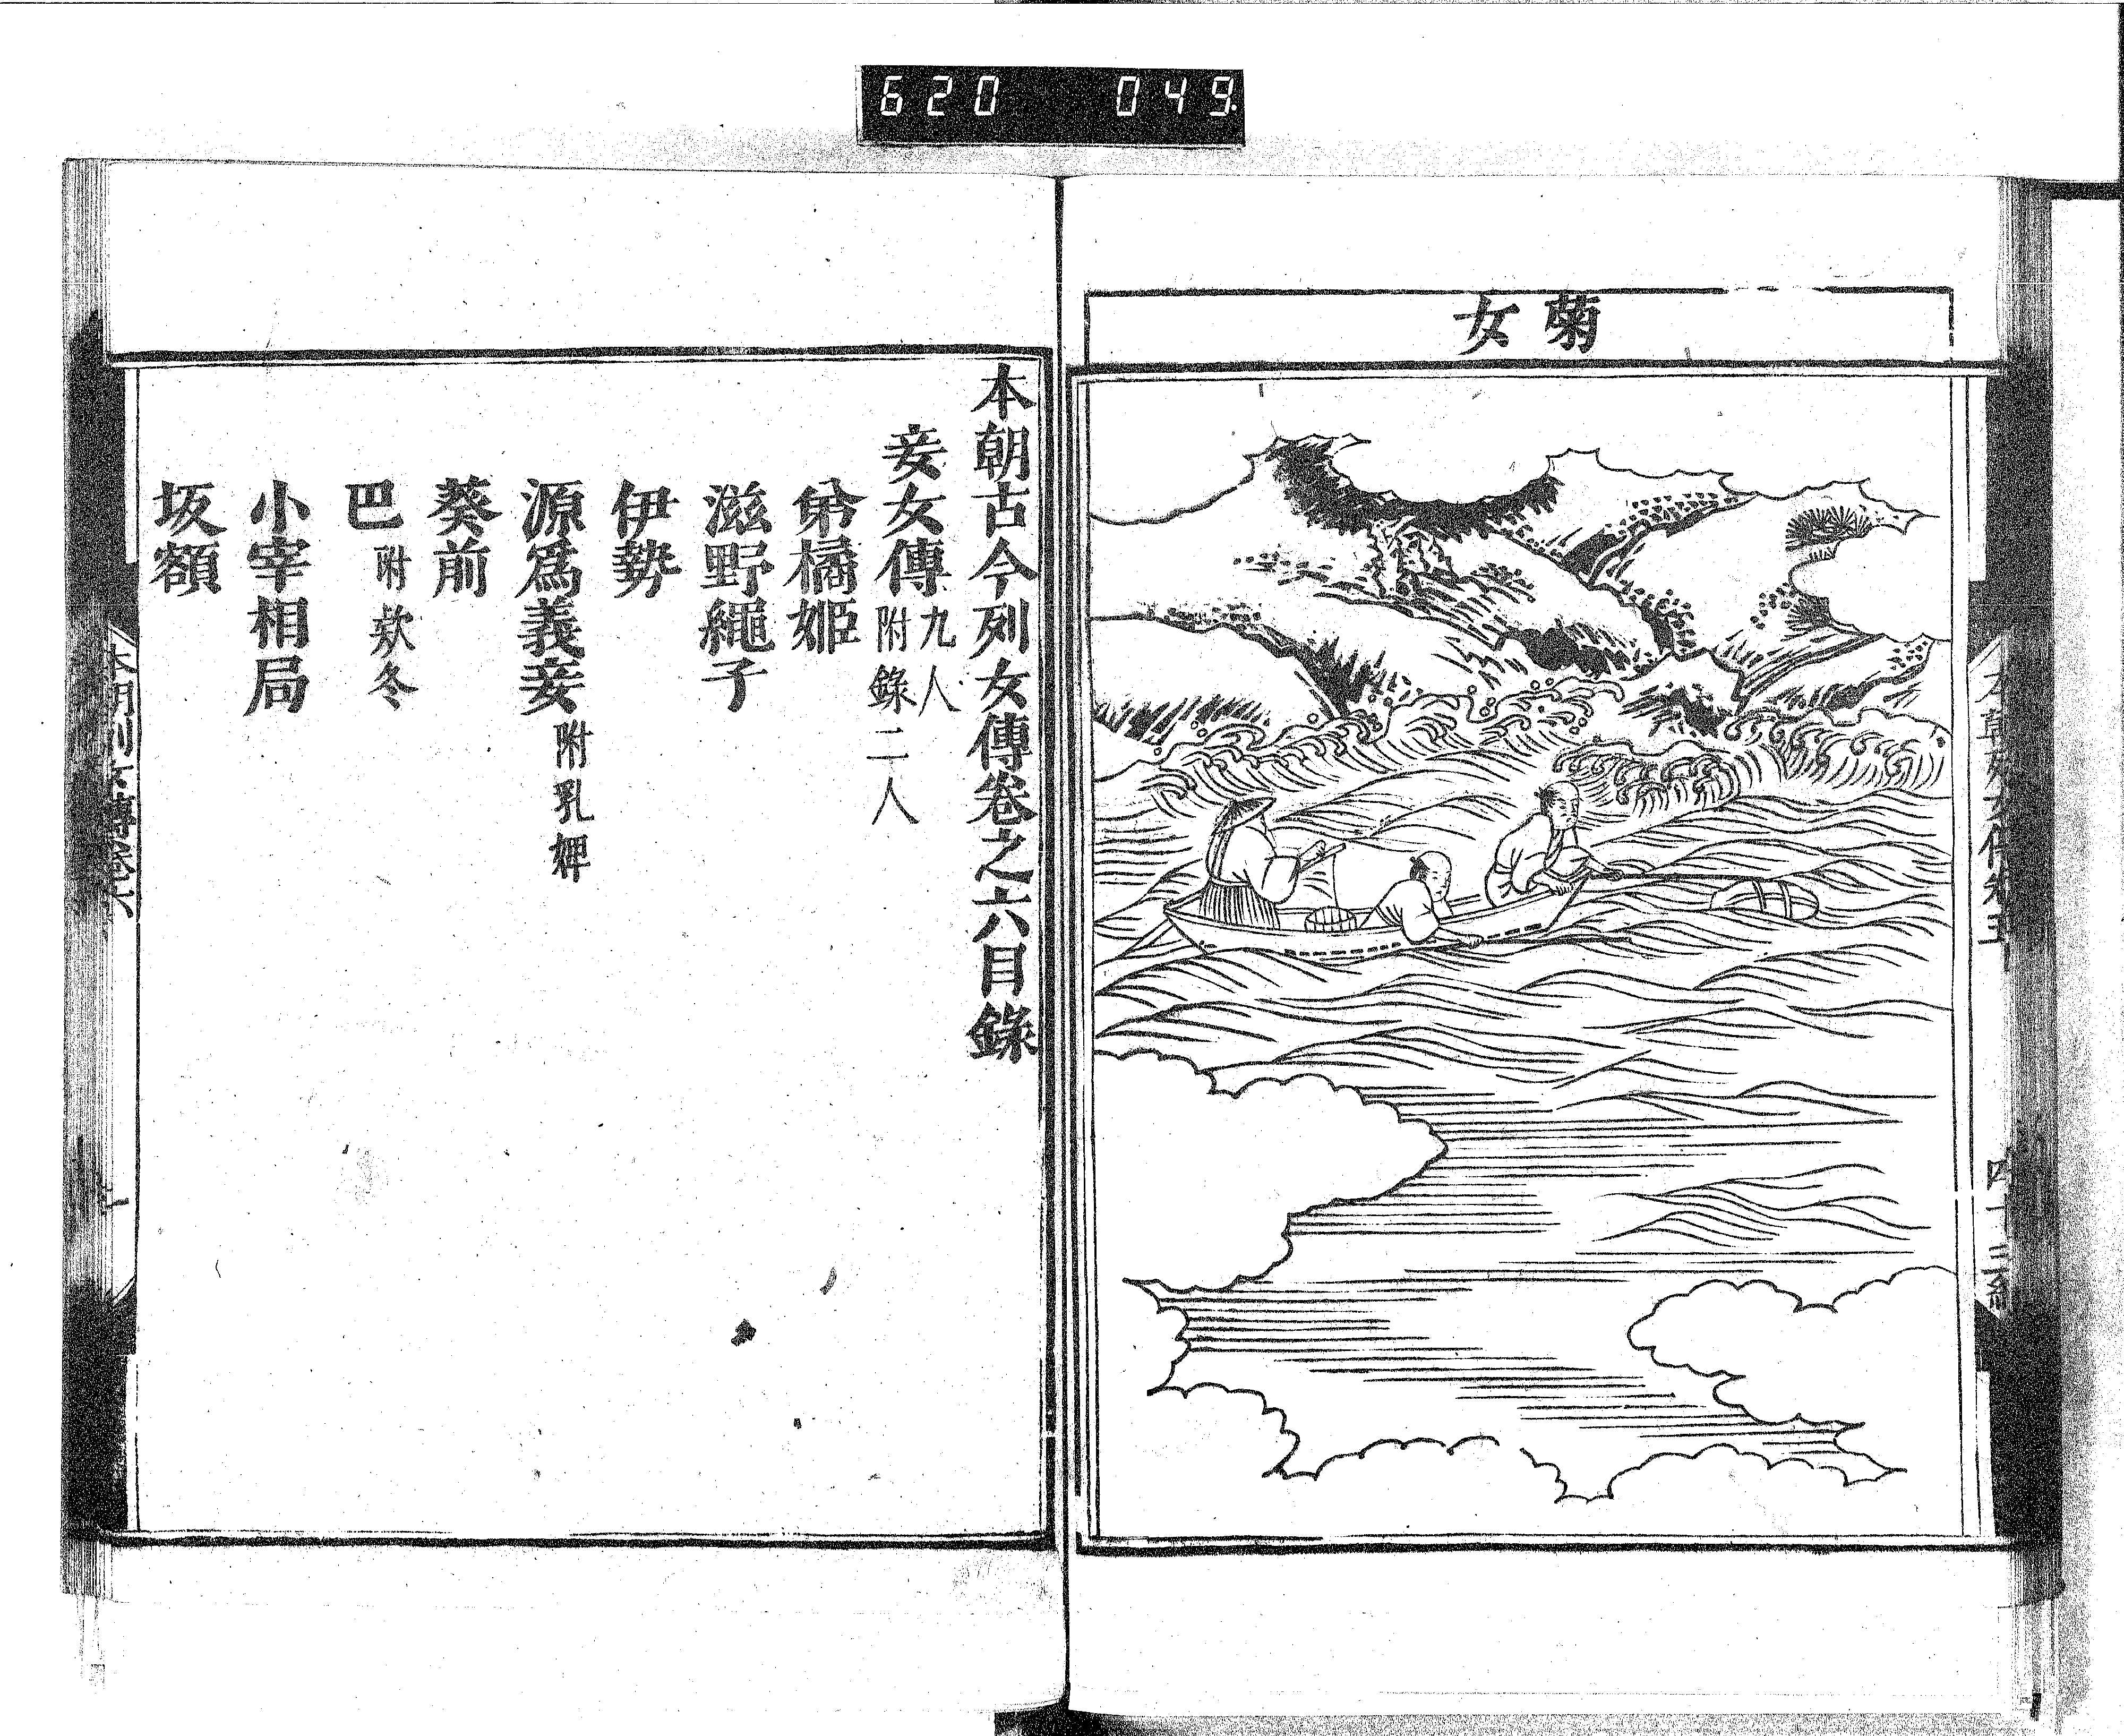 620 049.
菊女
本朝古今列女傳卷之六目錄
妾女傳 九人 附錄二人
弟橘姬
滋野繩子
伊勢
源爲義妾 附乳婢
葵前
巴 附欵冬
小宰相局
坂額